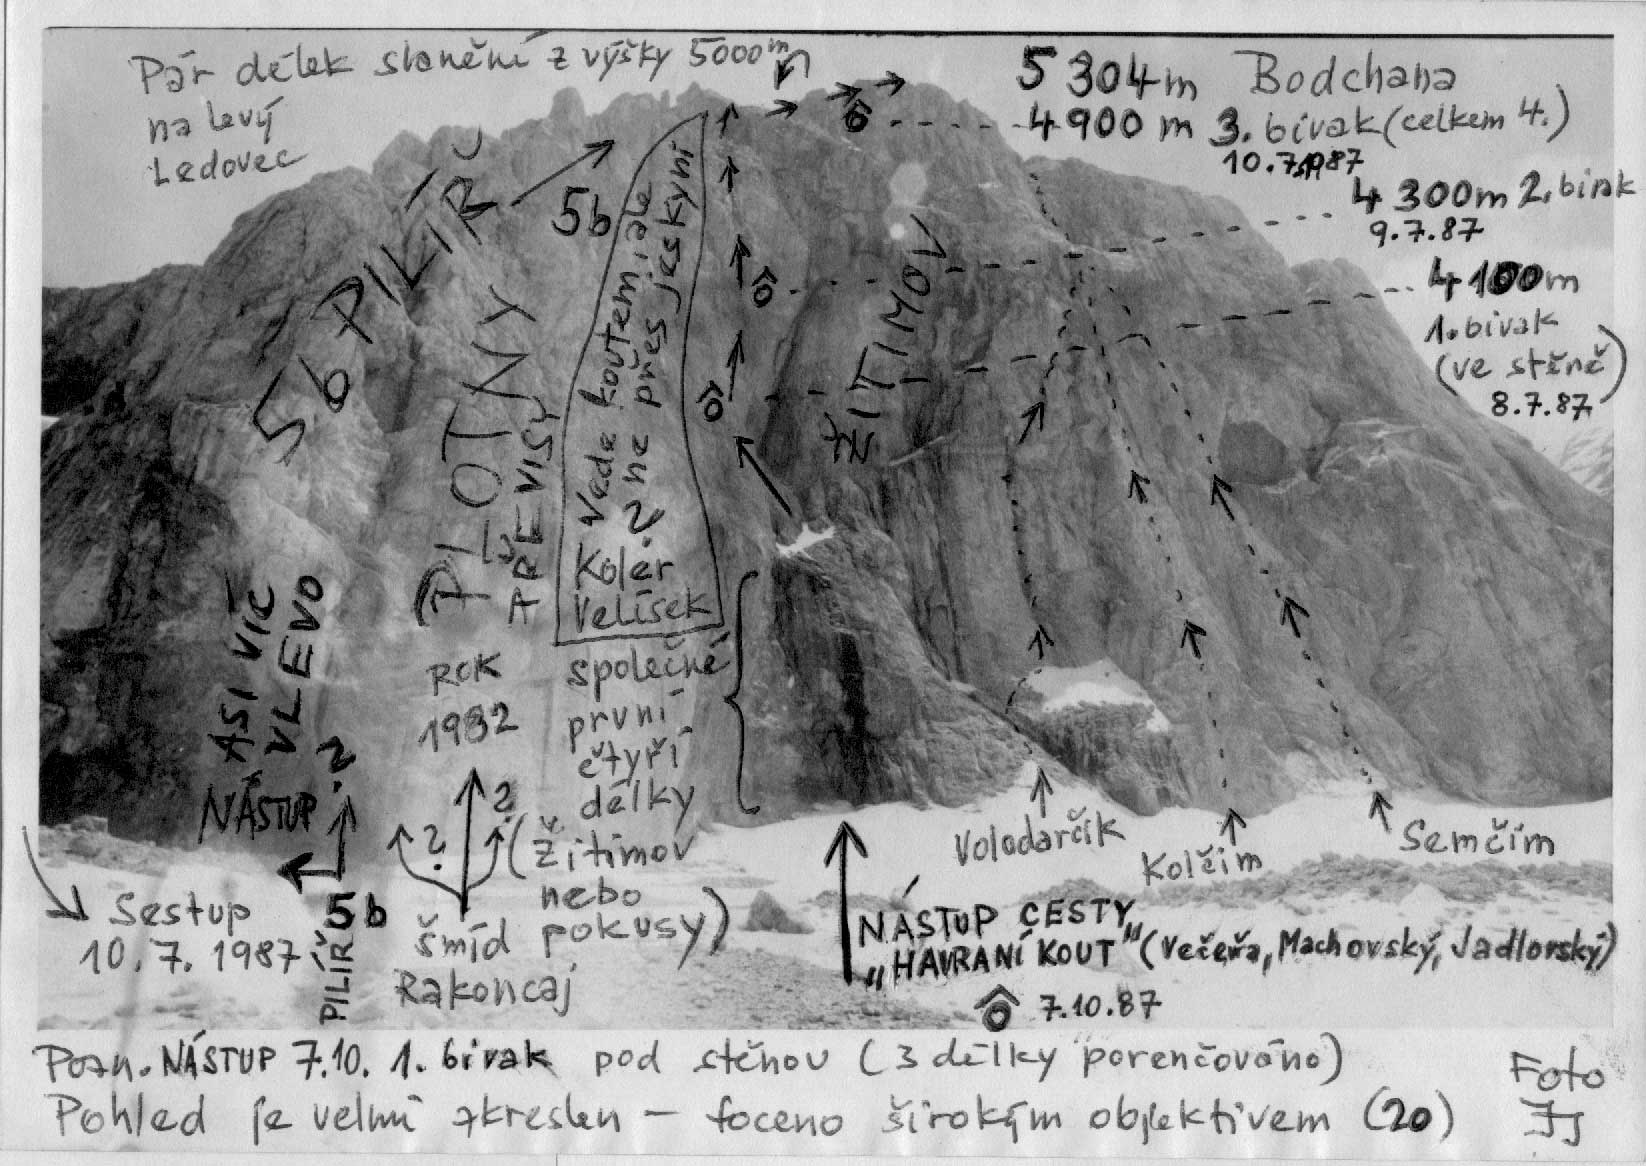 Pár délek slanění z výšky 5000m
na levý
Ledovec
5304m Bodchana
4900 m 3. bivak (celkem 4.)
10.7.1987
4300m 2. bivak
9.7.87
4100m
1. bivak
(ve stěně)
8.7.87
5b PILÍŘ
5b
PLOTNY
PŘEVISY
Vede koutem, ale
ne přes jeskyni
?
Koler
Velísek
ŽITIMOV
ASI VÍC
VLEVO
NÁSTUP
?
ROK
1982
společné
první
čtyři
délky
(Žitimov
nebo
pokusy)
?
?
Šmíd
Rakoncaj
Sestup
10.7.1987
5b
PILÍŘ
Volodarčík
Kolčim
Semčim
NÁSTUP CESTY
"HAVRANÍ KOUT" (Večeřa, Machovský, Jadlovský)
7.10.87
Pozn. NÁSTUP 7.10. 1. bivak pod stěnou (3 délky porenčováno)
Pohled je velmi zkreslen – foceno širokým objektivem (20)
Foto
JJ